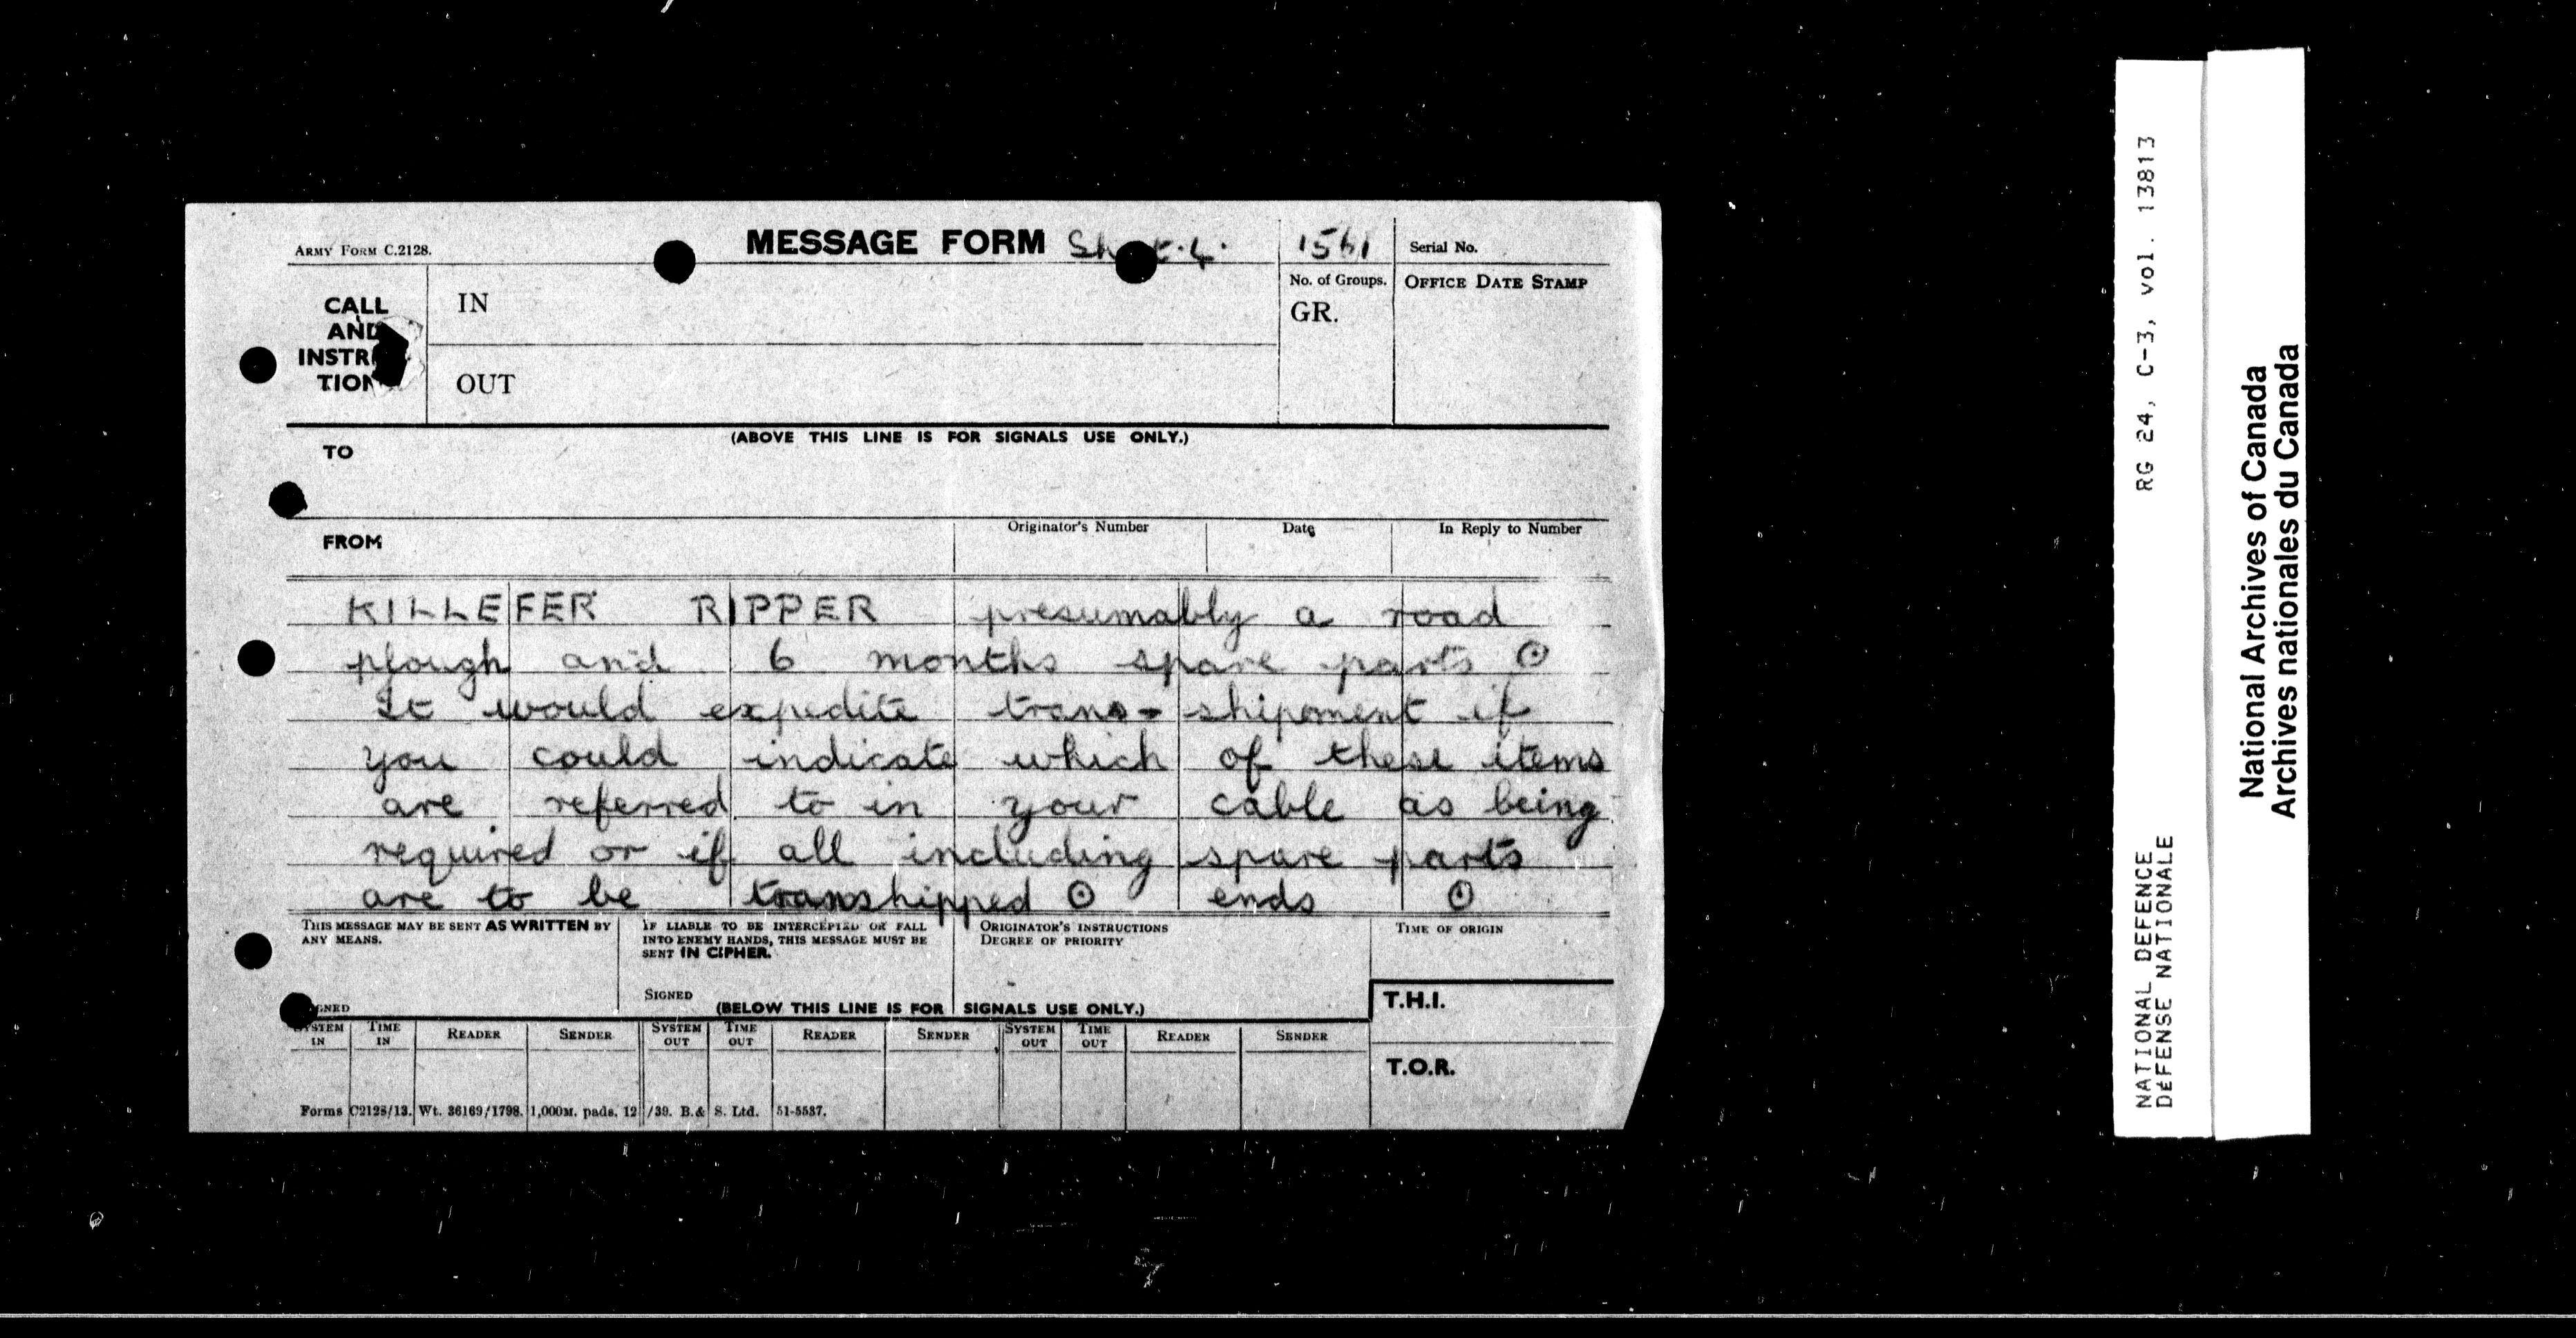 ARMY FORM C.2128.
MESSAGE FORM
1561
Serial No.
CALL
AND
IN
OUT
No. of Groups.
GR.
OFFICE DATE STAMP
(ABOVE THIS LINE IS FOR SIGNALS USE ONLY.)
TO
FROM
Originator's Number
Date
In Reply to Number
KILLEFER RIPPER presumably a road
plough and 6 months spare parts ⊙
It would expedite trans- shipment if
you could indicate which of these items
are referred to in your cable as being
required or if all including spare parts
are to be transhipped ⊙ ends ⊙
THIS MESSAGE MAY BE SENT AS WRITTEN BY
ANY MEANS.
IF LIABLE TO BE INTERCEPTED OR FALL
INTO ENEMY HANDS, THIS MESSAGE MUST BE
SENT IN CIPHER.
ORIGINATOR'S INSTRUCTIONS
DEGREE OF PRIORITY
TIME OF ORIGIN
SIGNED
(BELOW THIS LINE IS FOR SIGNALS USE ONLY.)
T.H.I.
SYSTEM IN
TIME IN
READER
SENDER
SYSTEM OUT
TIME OUT
READER
SENDER
SYSTEM OUT
TIME OUT
READER
SENDER
T.O.R.
Forms C2128/13. Wt. 36169/1798. 1,000M. pads. 12/39. B.& S. Ltd. 51-5537.
RG 24, C-3, vol. 13813
NATIONAL DEFENCE
DÉFENSE NATIONALE
National Archives of Canada
Archives nationales du Canada